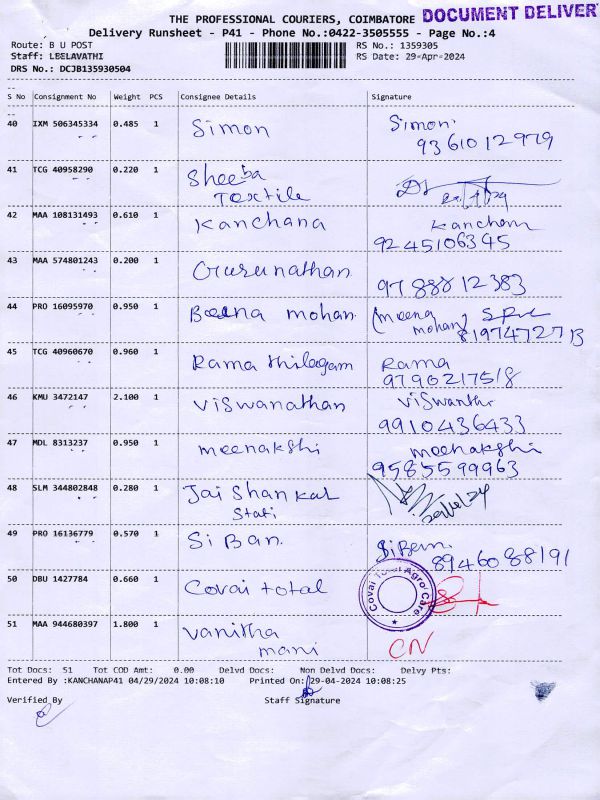 THE PROFESSIONAL COURIERS, COIMBATORE DOCUMENT DELIVER
Delivery Runsheet - P41 - Phone No.:0422-3505555 - Page No.:4
Route: B U POST RS No.: 1359305
Staff: LEELAVATHI RS Date: 29-Apr-2024
DRS No.: DCJB135930504
S No Consignment No Weight PCS Consignee Details Signature
40 IXM 506345334 0.485 1 Simon Simon
9361012979
41 TCG 40958290 0.220 1 Sheeba
Textile
42 MAA 108131493 0.610 1 Kanchana Kanchan
9245106345
43 MAA 574801243 0.200 1 Gurunathan
9788812383
44 PRO 16095970 0.950 1 Beena mohan (meena
mohan) 8197472713
45 TCG 40960670 0.960 1 Rama thilagam Rama
9790217518
46 KMU 3472147 2.100 1 Viswanathan Viswanth
9910436433
47 MDL 8313237 0.950 1 meenakshi meenakshi
9585599963
48 SLM 344802848 0.280 1 Jai Shankar
Stati
49 PRO 16136779 0.570 1 Si Ban
8946088191
50 DBU 1427784 0.660 1 Covai total Covai Total Agro Care
51 MAA 944680397 1.800 1 Vanitha CN
mani
Tot Docs: 51 Tot COD Amt: 0.00 Delvd Docs: Non Delvd Docs: Delvy Pts:
Entered By :KANCHANAP41 04/29/2024 10:08:10 Printed On: 29-04-2024 10:08:25
Verified By Staff Signature